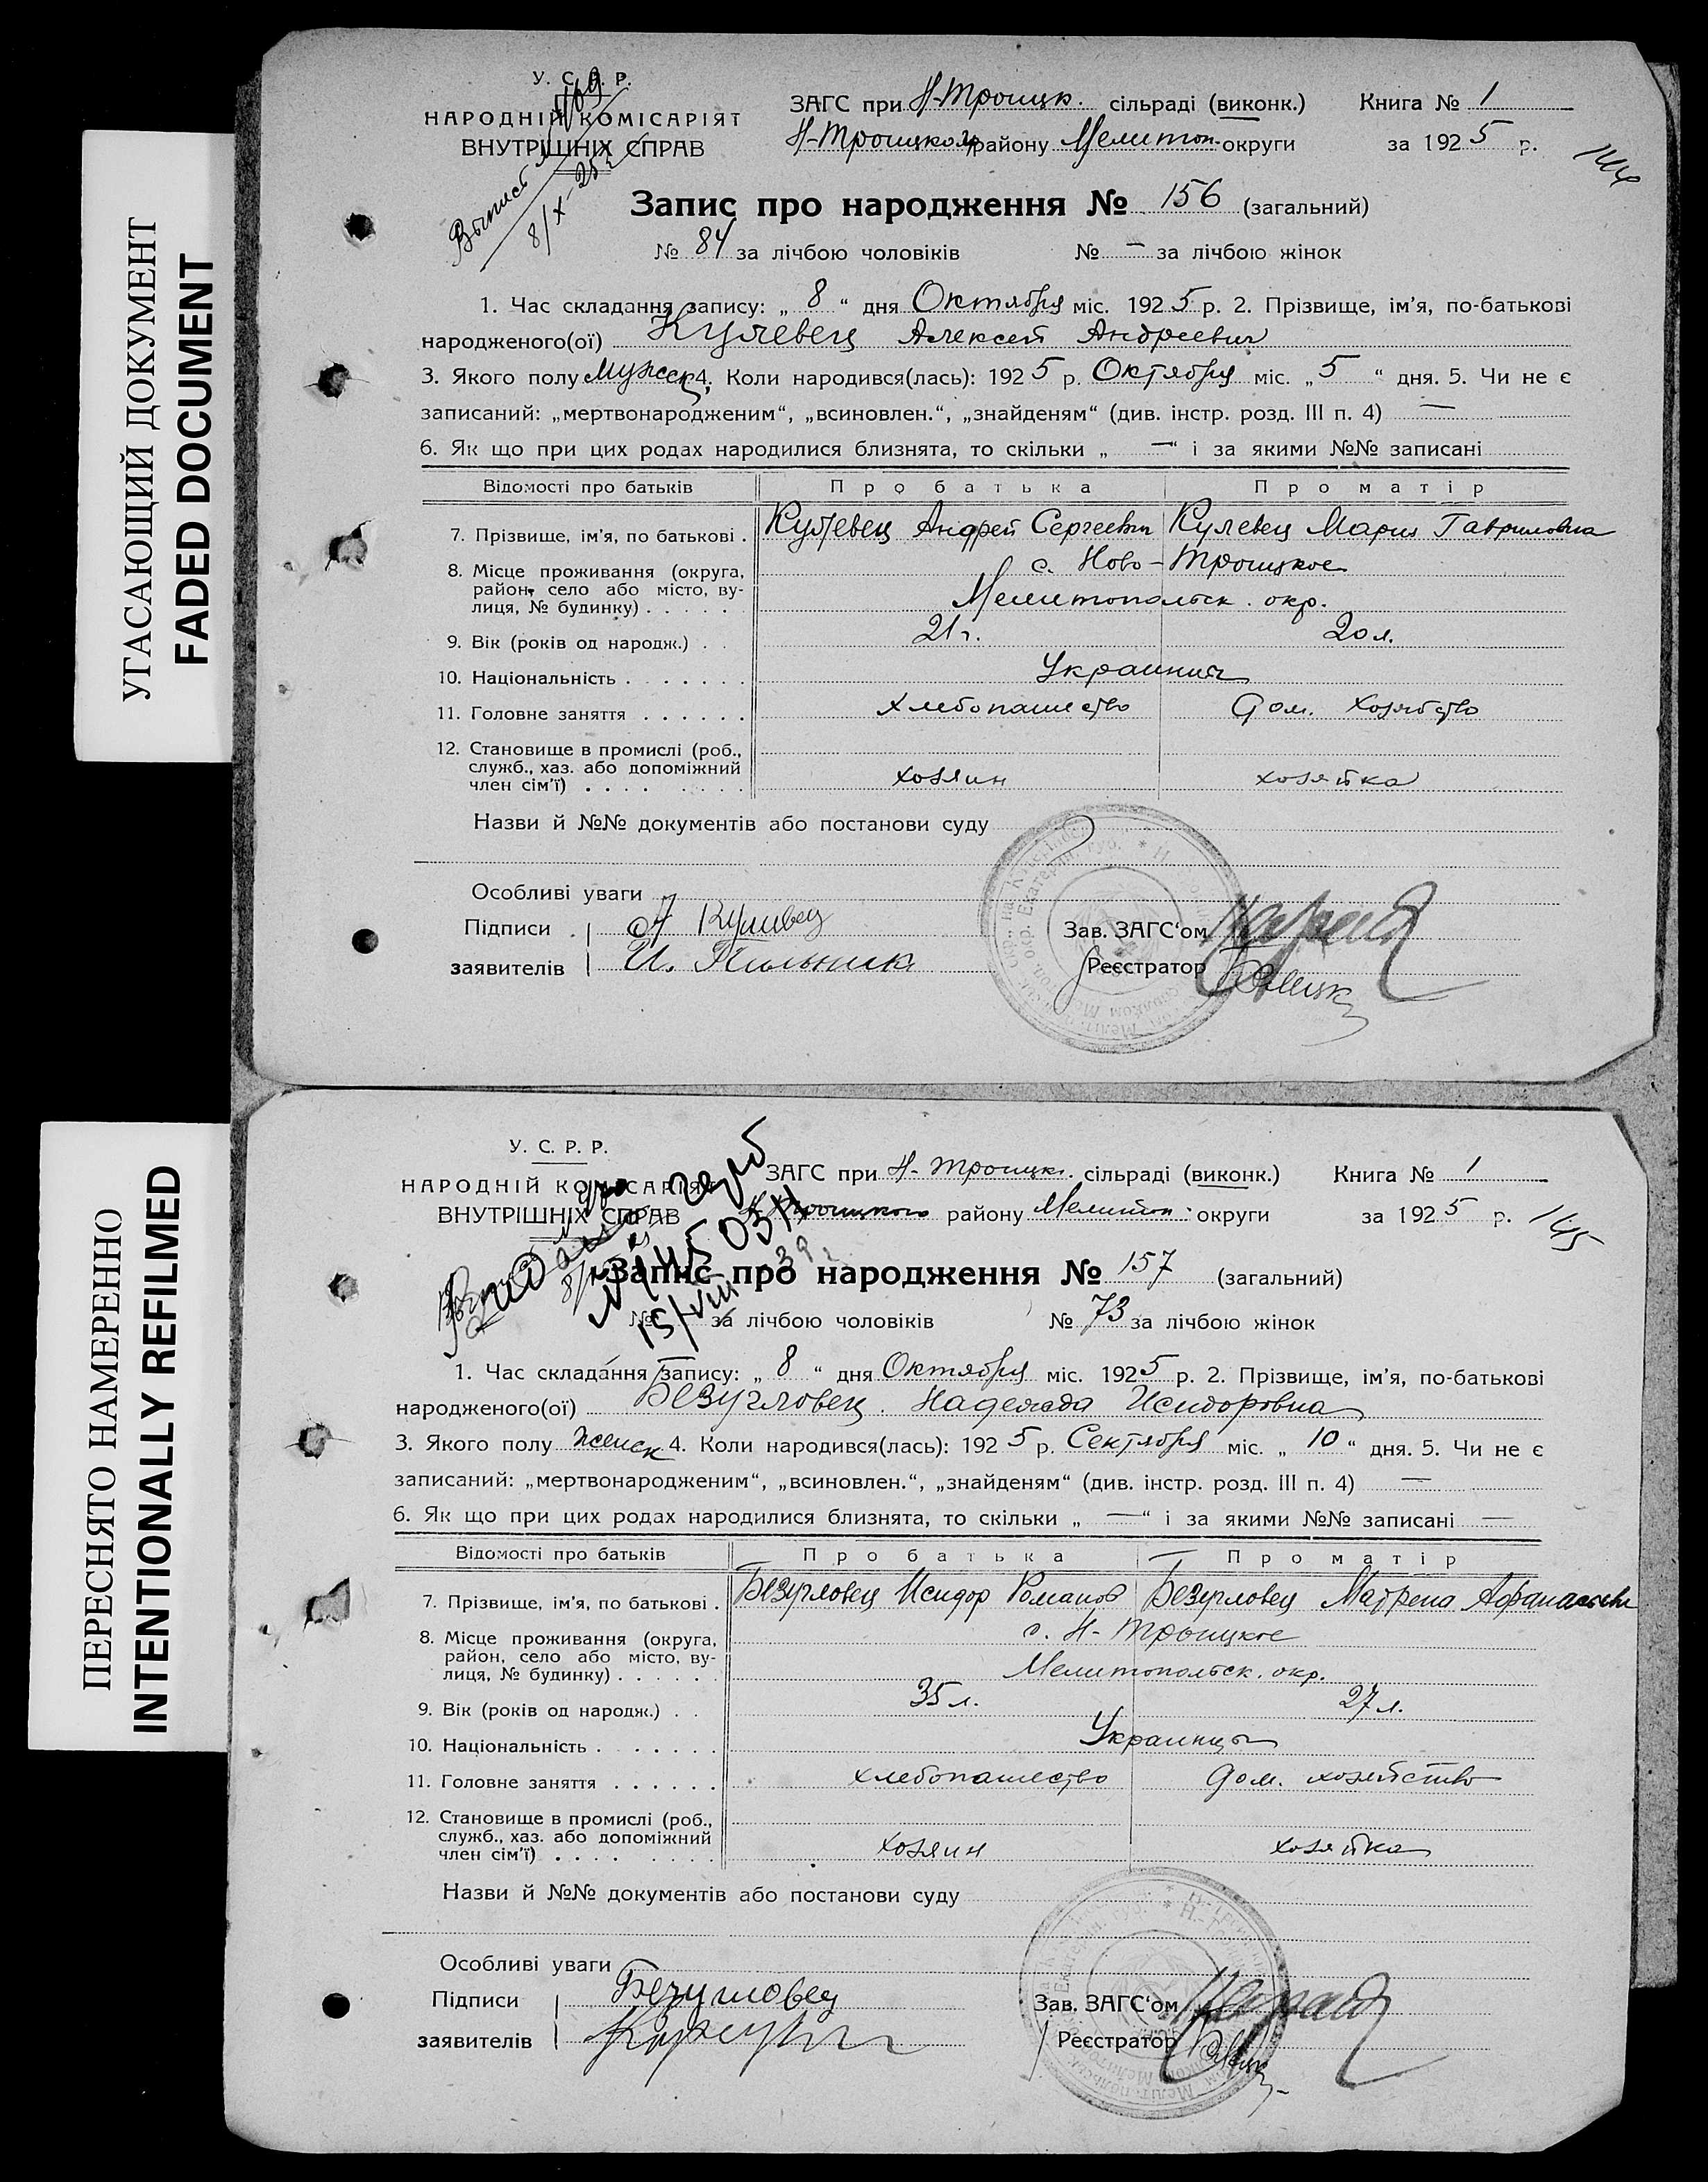 УГАСАЮЩИЙ ДОКУМЕНТ
FADED DOCUMENT
У. С. Р. Р.
НАРОДНІЙ КОМІСАРІЯТ
ВНУТРІШНІХ СПРАВ
Выпись
8/X-25 г
ЗАГС при Н-Троицк. сільраді (виконк.) Книга № 1
Н-Троицком району Мелитоп. округи за 1925 р.
144
Запис про народження № 156 (загальний)
№ 84 за лічбою чоловіків № — за лічбою жінок
1. Час складання запису: „ 8 “ дня Октября міс. 1925 р. 2. Прізвище, ім’я, по-батькові
народженого(ої) Кулевец Алексей Андреевич
3. Якого полу мужск 4. Коли народився(лась): 1925 р. Октября міс. „ 5 “ дня. 5. Чи не є
записаний: „мертвонародженим“, „всиновлен.“, „знайденям“ (див. інстр. розд. III п. 4) —
6. Як що при цих родах народилися близнята, то скільки „ — “ і за якими №№ записані
Відомості про батьків Про батька Про матір
7. Прізвище, ім’я, по батькові . Кулевец Андрей Сергеевич Кулевец Мария Гавриловна
8. Місце проживання (округа, с. Ново-Троицкое
район, село або місто, ву-
лиця, № будинку) . . . . . Мелитопольск. окр.
9. Вік (років од народж.) . . 21 г. 20 л.
10. Національність . . . . . . . Украинцы
11. Головне заняття . . . . . . хлебопашество Дом. хозяйство
12. Становище в промислі (роб.,
служб., хаз. або допоміжний
член сім’ї) . . . . . . . . хозяин хозяйка
Назви й №№ документів або постанови суду
Особливі уваги
Підписи А Кулевец Зав. ЗАГС‘ом
заявителів И. Пильник Реєстратор
ПЕРЕСНЯТО НАМЕРЕННО
INTENTIONALLY REFILMED
У. С. Р. Р.
НАРОДНІЙ КОМІСАРІЯТ
ВНУТРІШНІХ СПРАВ
ЗАГС при Н-Троицк. сільраді (виконк.) Книга № 1
Н-Троицкого району Мелитоп. округи за 1925 р.
145
15/VIII 39 г
Запис про народження № 157 (загальний)
№ за лічбою чоловіків № 73 за лічбою жінок
1. Час складання запису: „ 8 “ дня Октября міс. 1925 р. 2. Прізвище, ім’я, по-батькові
народженого(ої) Безугловец Надежда Исидоровна
3. Якого полу женск 4. Коли народився(лась): 1925 р. Сентября міс. „ 10 “ дня. 5. Чи не є
записаний: „мертвонародженим“, „всиновлен.“, „знайденям“ (див. інстр. розд. III п. 4) —
6. Як що при цих родах народилися близнята, то скільки „ — “ і за якими №№ записані —
Відомості про батьків Про батька Про матір
7. Прізвище, ім’я, по батькові . Безугловец Исидор Романов Безугловец Матрена Афанасьевн
8. Місце проживання (округа, с. Н-Троицкое
район, село або місто, ву-
лиця, № будинку) . . . . . Мелитопольск. окр.
9. Вік (років од народж.) . . 35 л. 27 л.
10. Національність . . . . . . . Украинцы
11. Головне заняття . . . . . . хлебопашество дом. хозяйство
12. Становище в промислі (роб.,
служб., хаз. або допоміжний
член сім’ї) . . . . . . . . хозяин хозяйка
Назви й №№ документів або постанови суду
Особливі уваги
Підписи Безугловец Зав. ЗАГС‘ом
заявителів Реєстратор